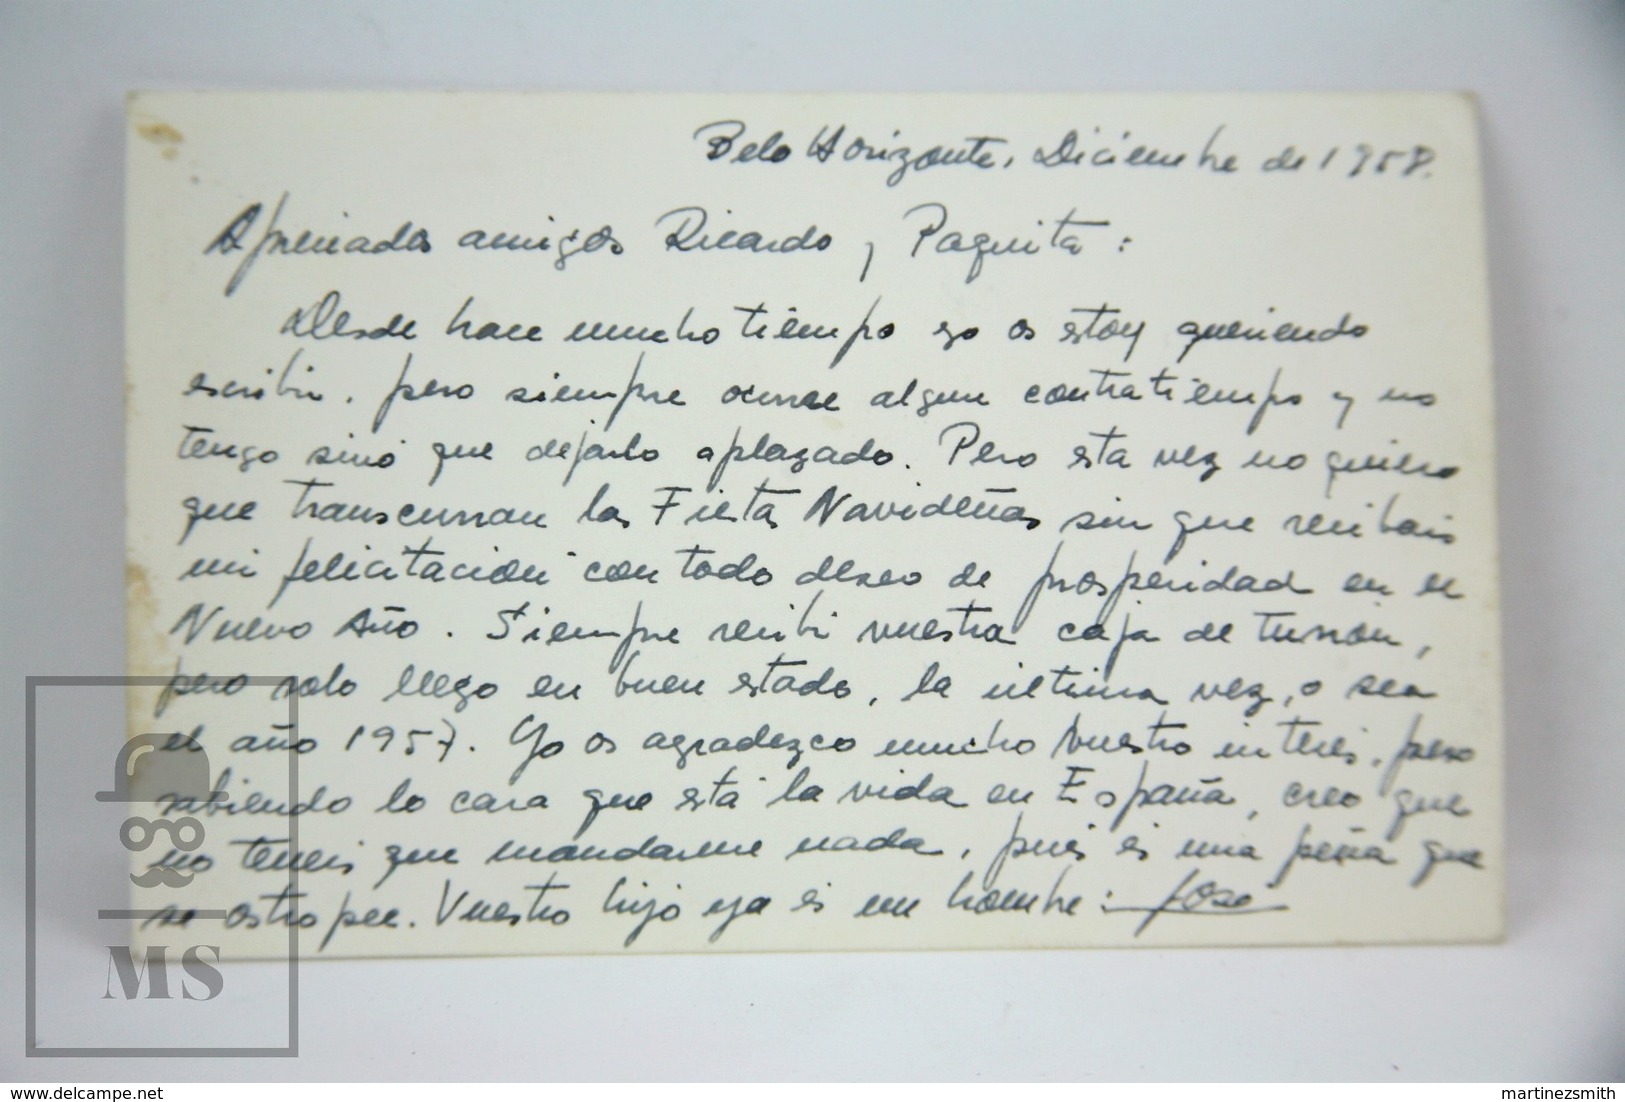 Belo Horizonte, Diciembre de 1958.
Apreciados amigos Ricardo y Paquita:
Desde hace mucho tiempo yo os estoy queriendo
escribir, pero siempre ocurre algun contratiempo y no
tengo sinó que dejarlo aplazado. Pero esta vez no quiero
que transcurran las Fiestas Navideñas sin que recibais
mi felicitación con todo deseo de prosperidad en el
Nuevo Año. Siempre recibi vuestra caja de turrón,
pero solo llego en buen estado, la ultima vez, o sea
el año 1957. Yo os agradezco mucho vuestro interés, pero
sabiendo lo cara que está la vida en España, creo que
no teneis que mandarme nada, pués és una pena que
se estropee. Vuestro hijo ya és un hombre: José
MS
delcampe.net
martinezsmith